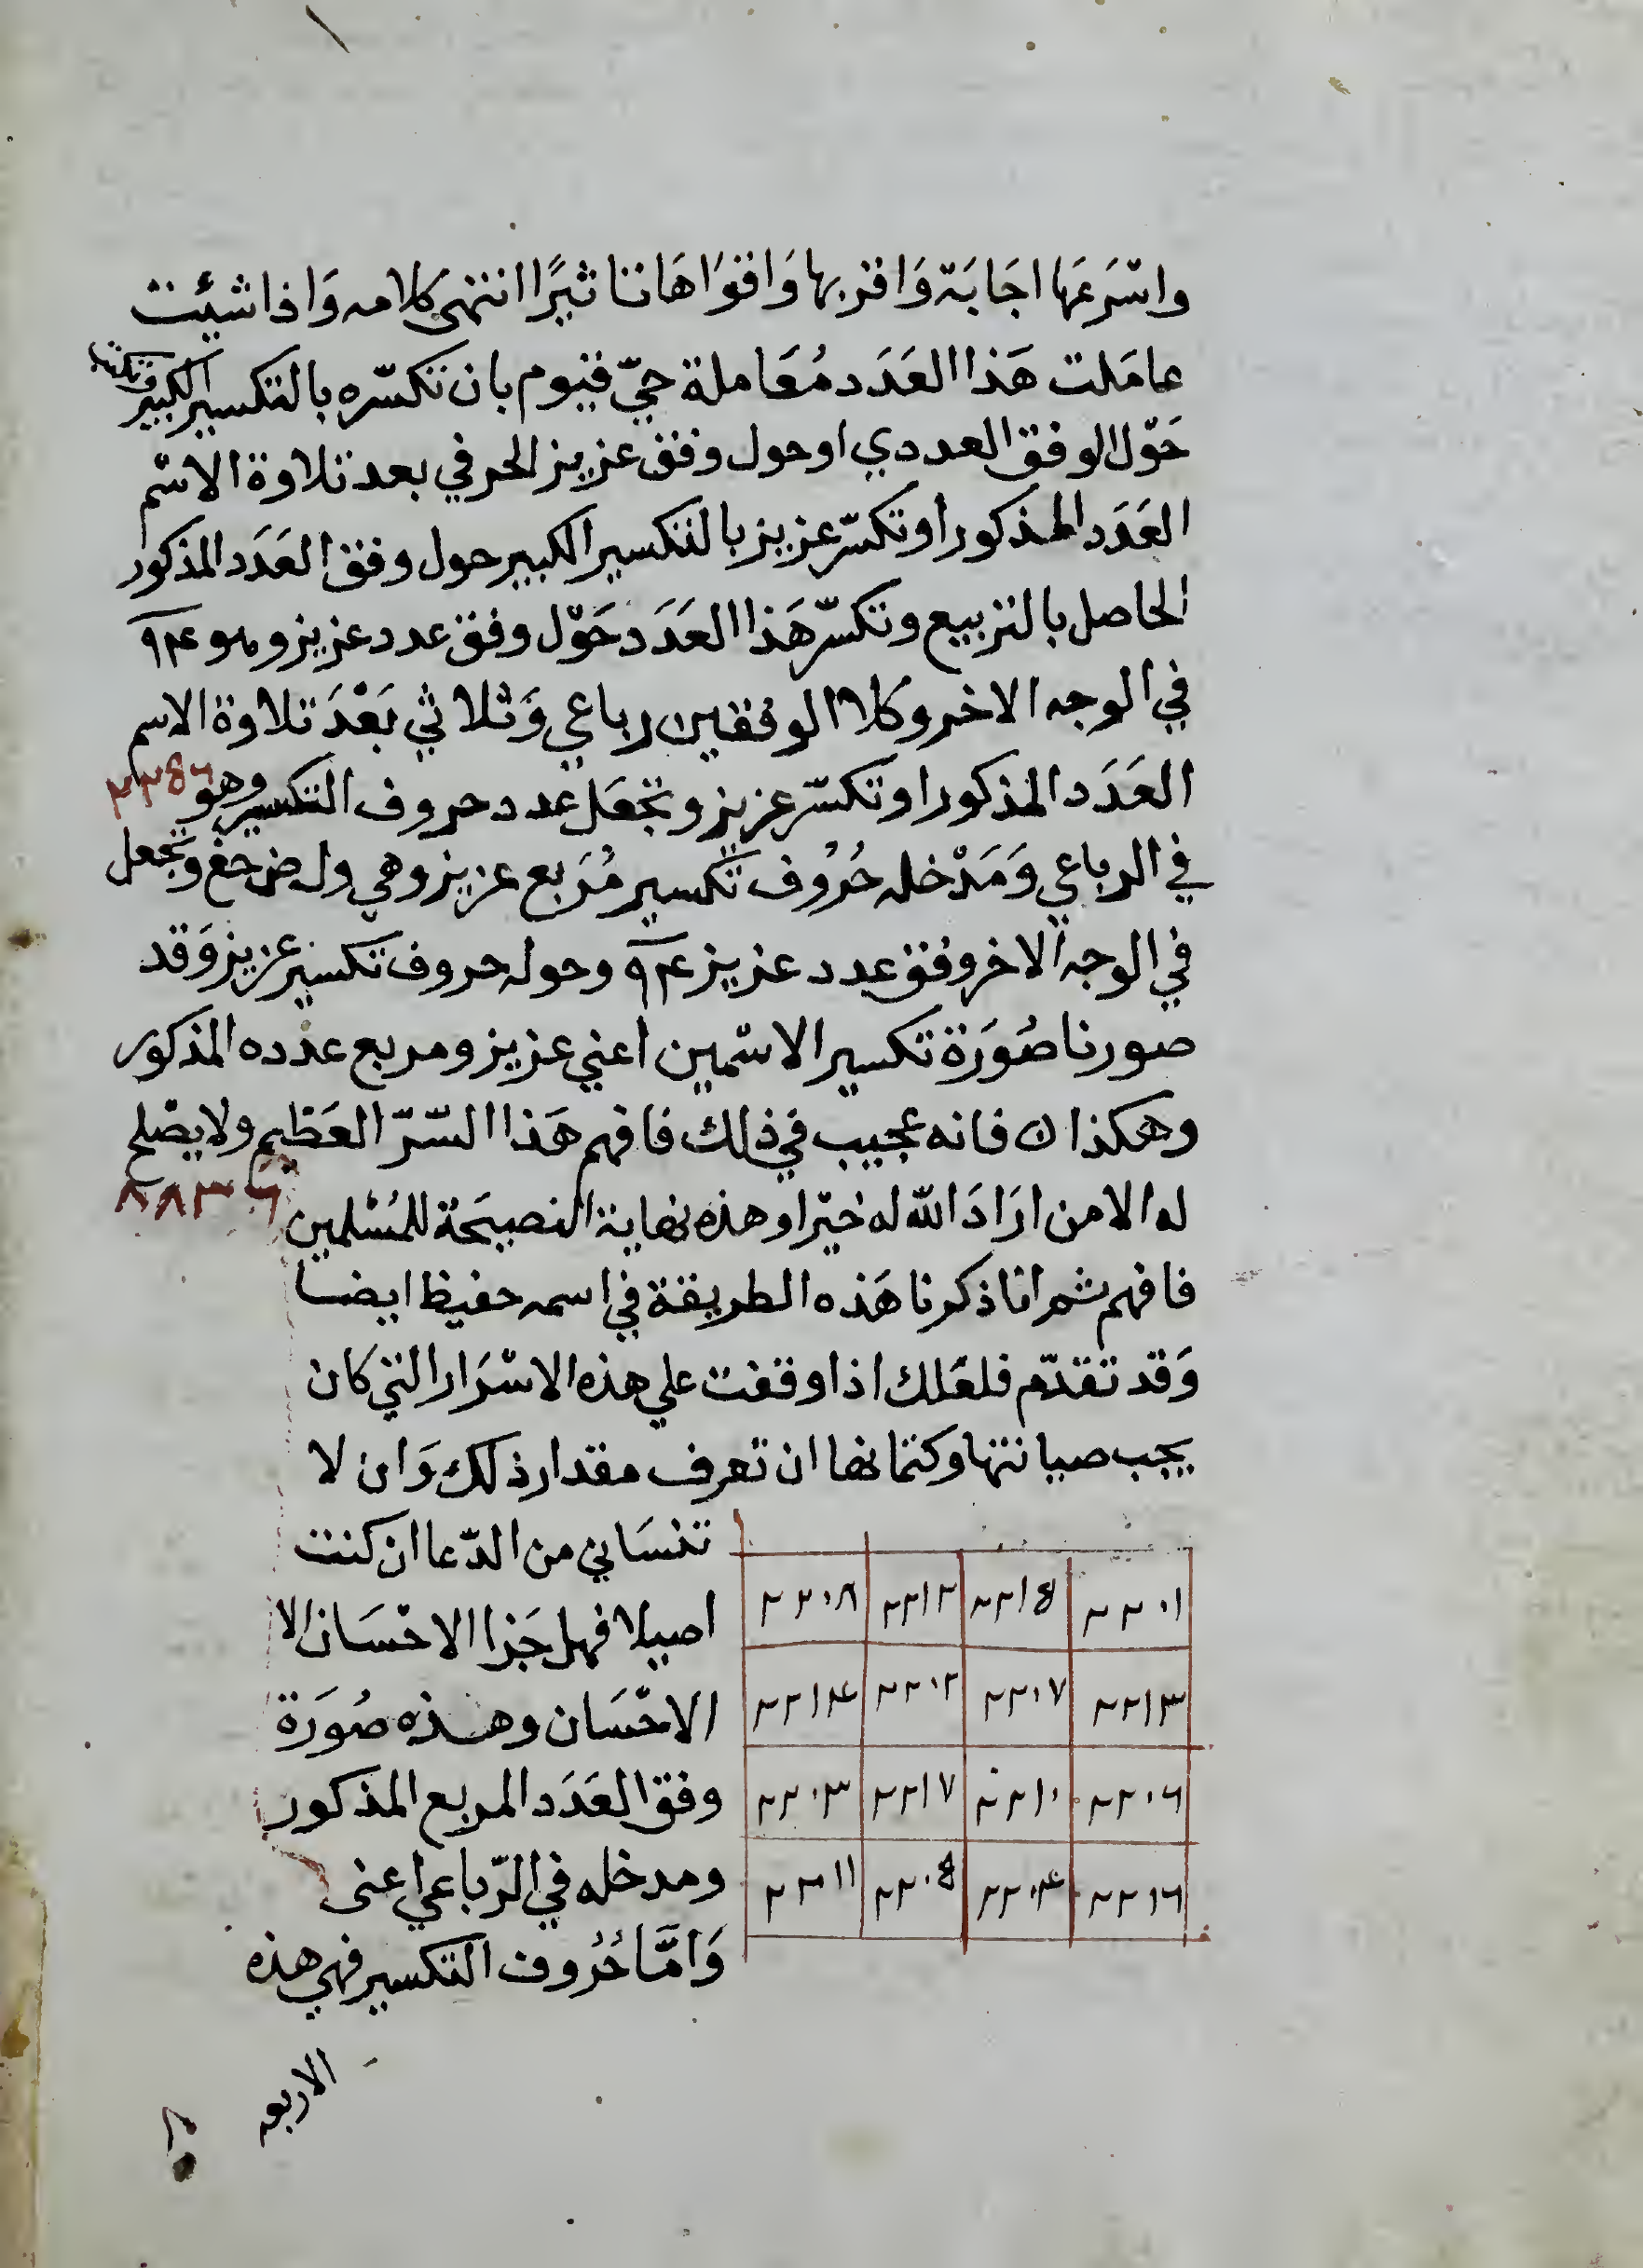 واسْرَعَها اجَابَة وَاقربها وَاقوَاهَا تاثيرًا انتهى كلامه وَاذا شئت
عامَلت هَذا العَدَد مُعَاملة حيّ قيوم بان تكسّره بالتكسير الكبير
حَوْل الوفق العددي او حول وفق عزيز الحرفي بعد تلاوة الاسْم
العَدَد المذكور او تكسّر عزيز بالتكسير الكبير حول وفق العَدَد المذكور
الحاصل بالتربيع وتكسّر هَذا العَدَد حَوْل وفق عدد عزيز وهو ٩٤
في الوجه الاخر وكلا الوفقين رباعي وَثلاثي بَعْدَ تلاوة الاسم
العَدَد المذكور او تكسّر عزيز وتجعَل عدد حروف التكسير وهو
في الرباعي وَمَدْخله حُرُوف تكسير مُرَبع عزيز وهي ول ض حغ وتجعل
في الوجه الاخر وفق عدد عزيز ٩٤ وحوله حروف تكسير عزيز وَقد
صورنا صُورَة تكسير الاسْمين اعني عزيز ومربع عدده المذكور
وهكذا ن فانه عجيب في ذلك فافهم هَذا السّرّ العَظيم ولا يصْلح
له الا من ارَادَ الله له خيْرا وهذه نهاية النصيحَة للمُسْلمين
٨٨٣٦
فافهم ثم انا ذكرنا هَذه الطريقة في اسمه حفيظ ايضا
وَقد تقدّم فلعَلك اذا وقفت علي هذه الاسْرَار التي كان
يجب صيانتها وكتمانها ان تعرف مقدار ذلك وَان لا
تنسَاني من الدّعا ان كنت
اصيلا فهل جَزا الاحْسَان الا
الاحْسَان وهذه صُورَة
وفق العَدَد المربع المذكور
ومدخله في الرّباعي اعنى
وَامَّا حُرُوف التكسير فهي هذه
٢٢٠١ ٢٢١٥ ٢٢١٢ ٢٢٠٨
٢٢١٣ ٢٢٠٧ ٢٢٠٢ ٢٢١٤
٢٢٠٦ ٢٢١٠ ٢٢١٧ ٢٢٠٣
٢٢١٦ ٢٢٠٤ ٢٢٠٥ ٢٢١١
الاربعه